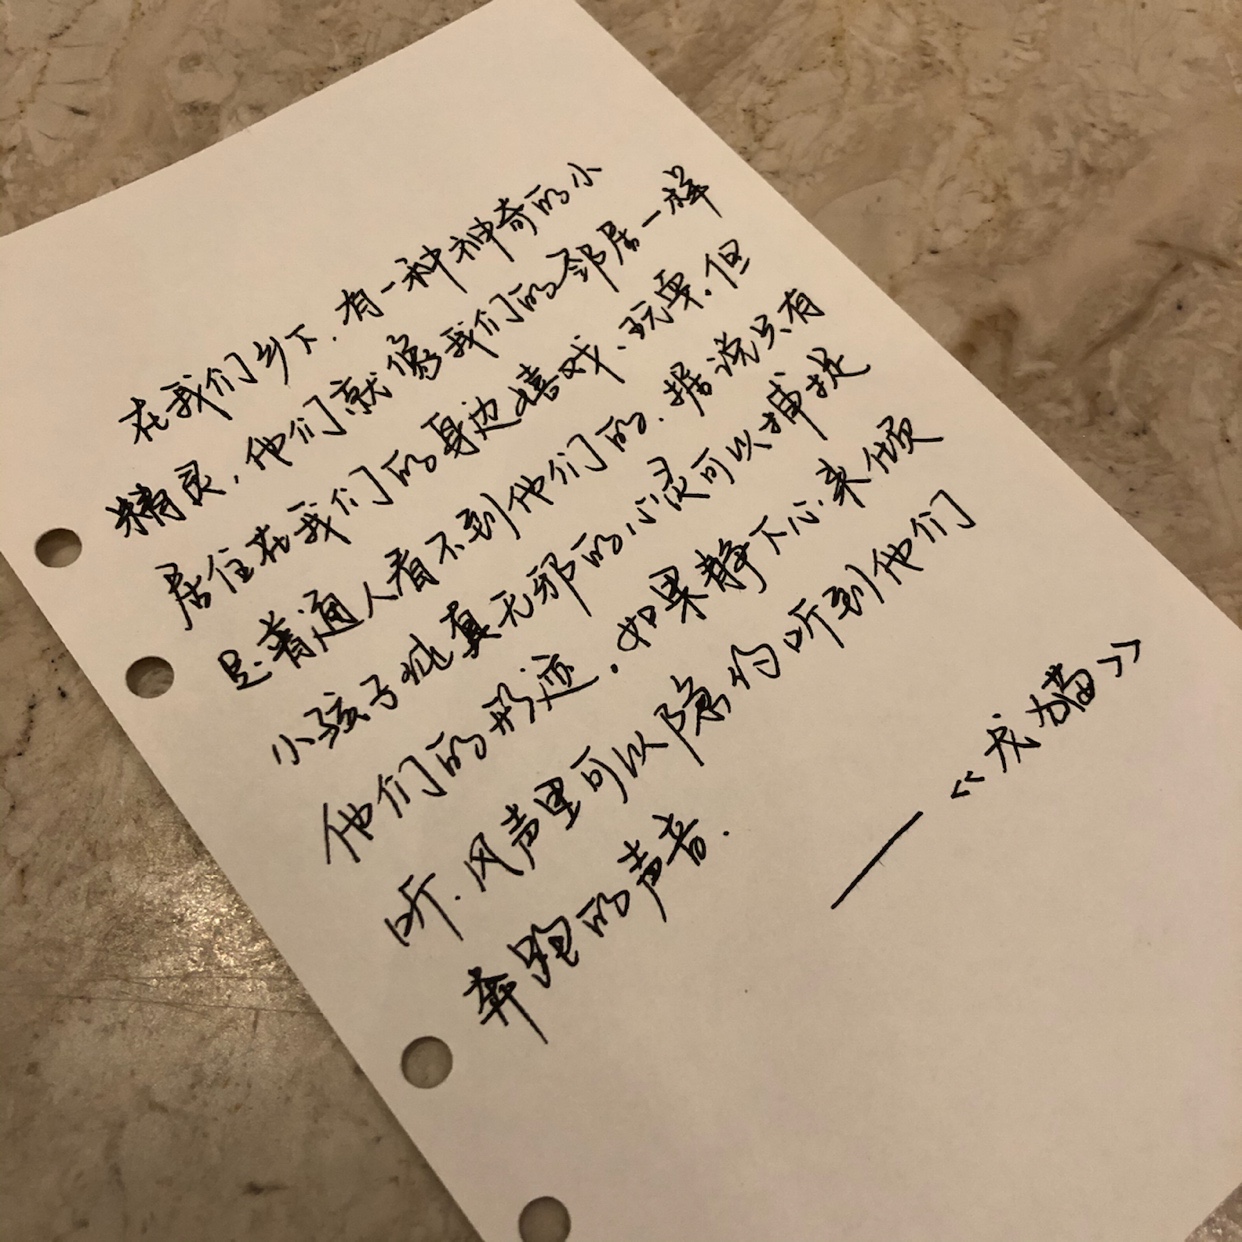 在我们乡下.有一种神奇的小
精灵,他们就像我们的邻居一样
居住在我们的身边嬉戏、玩耍.但
是普通人看不到他们的.据说只有
小孩子纯真无邪的心灵可以捕捉
他们的形迹.如果静下心来倾
听.风声里可以隐约听到他们
奔跑的声音.
——《龙猫》